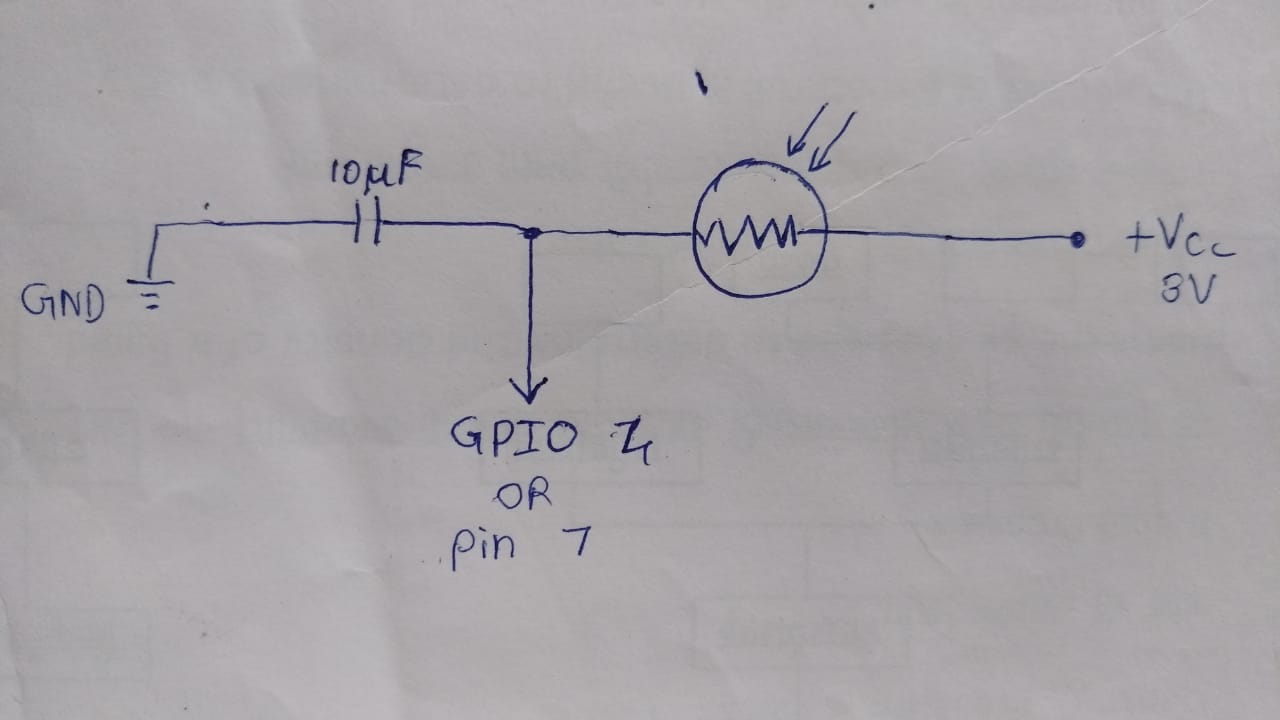 10μF
GND
+Vcc
3V
GPIO 4
OR
pin 7